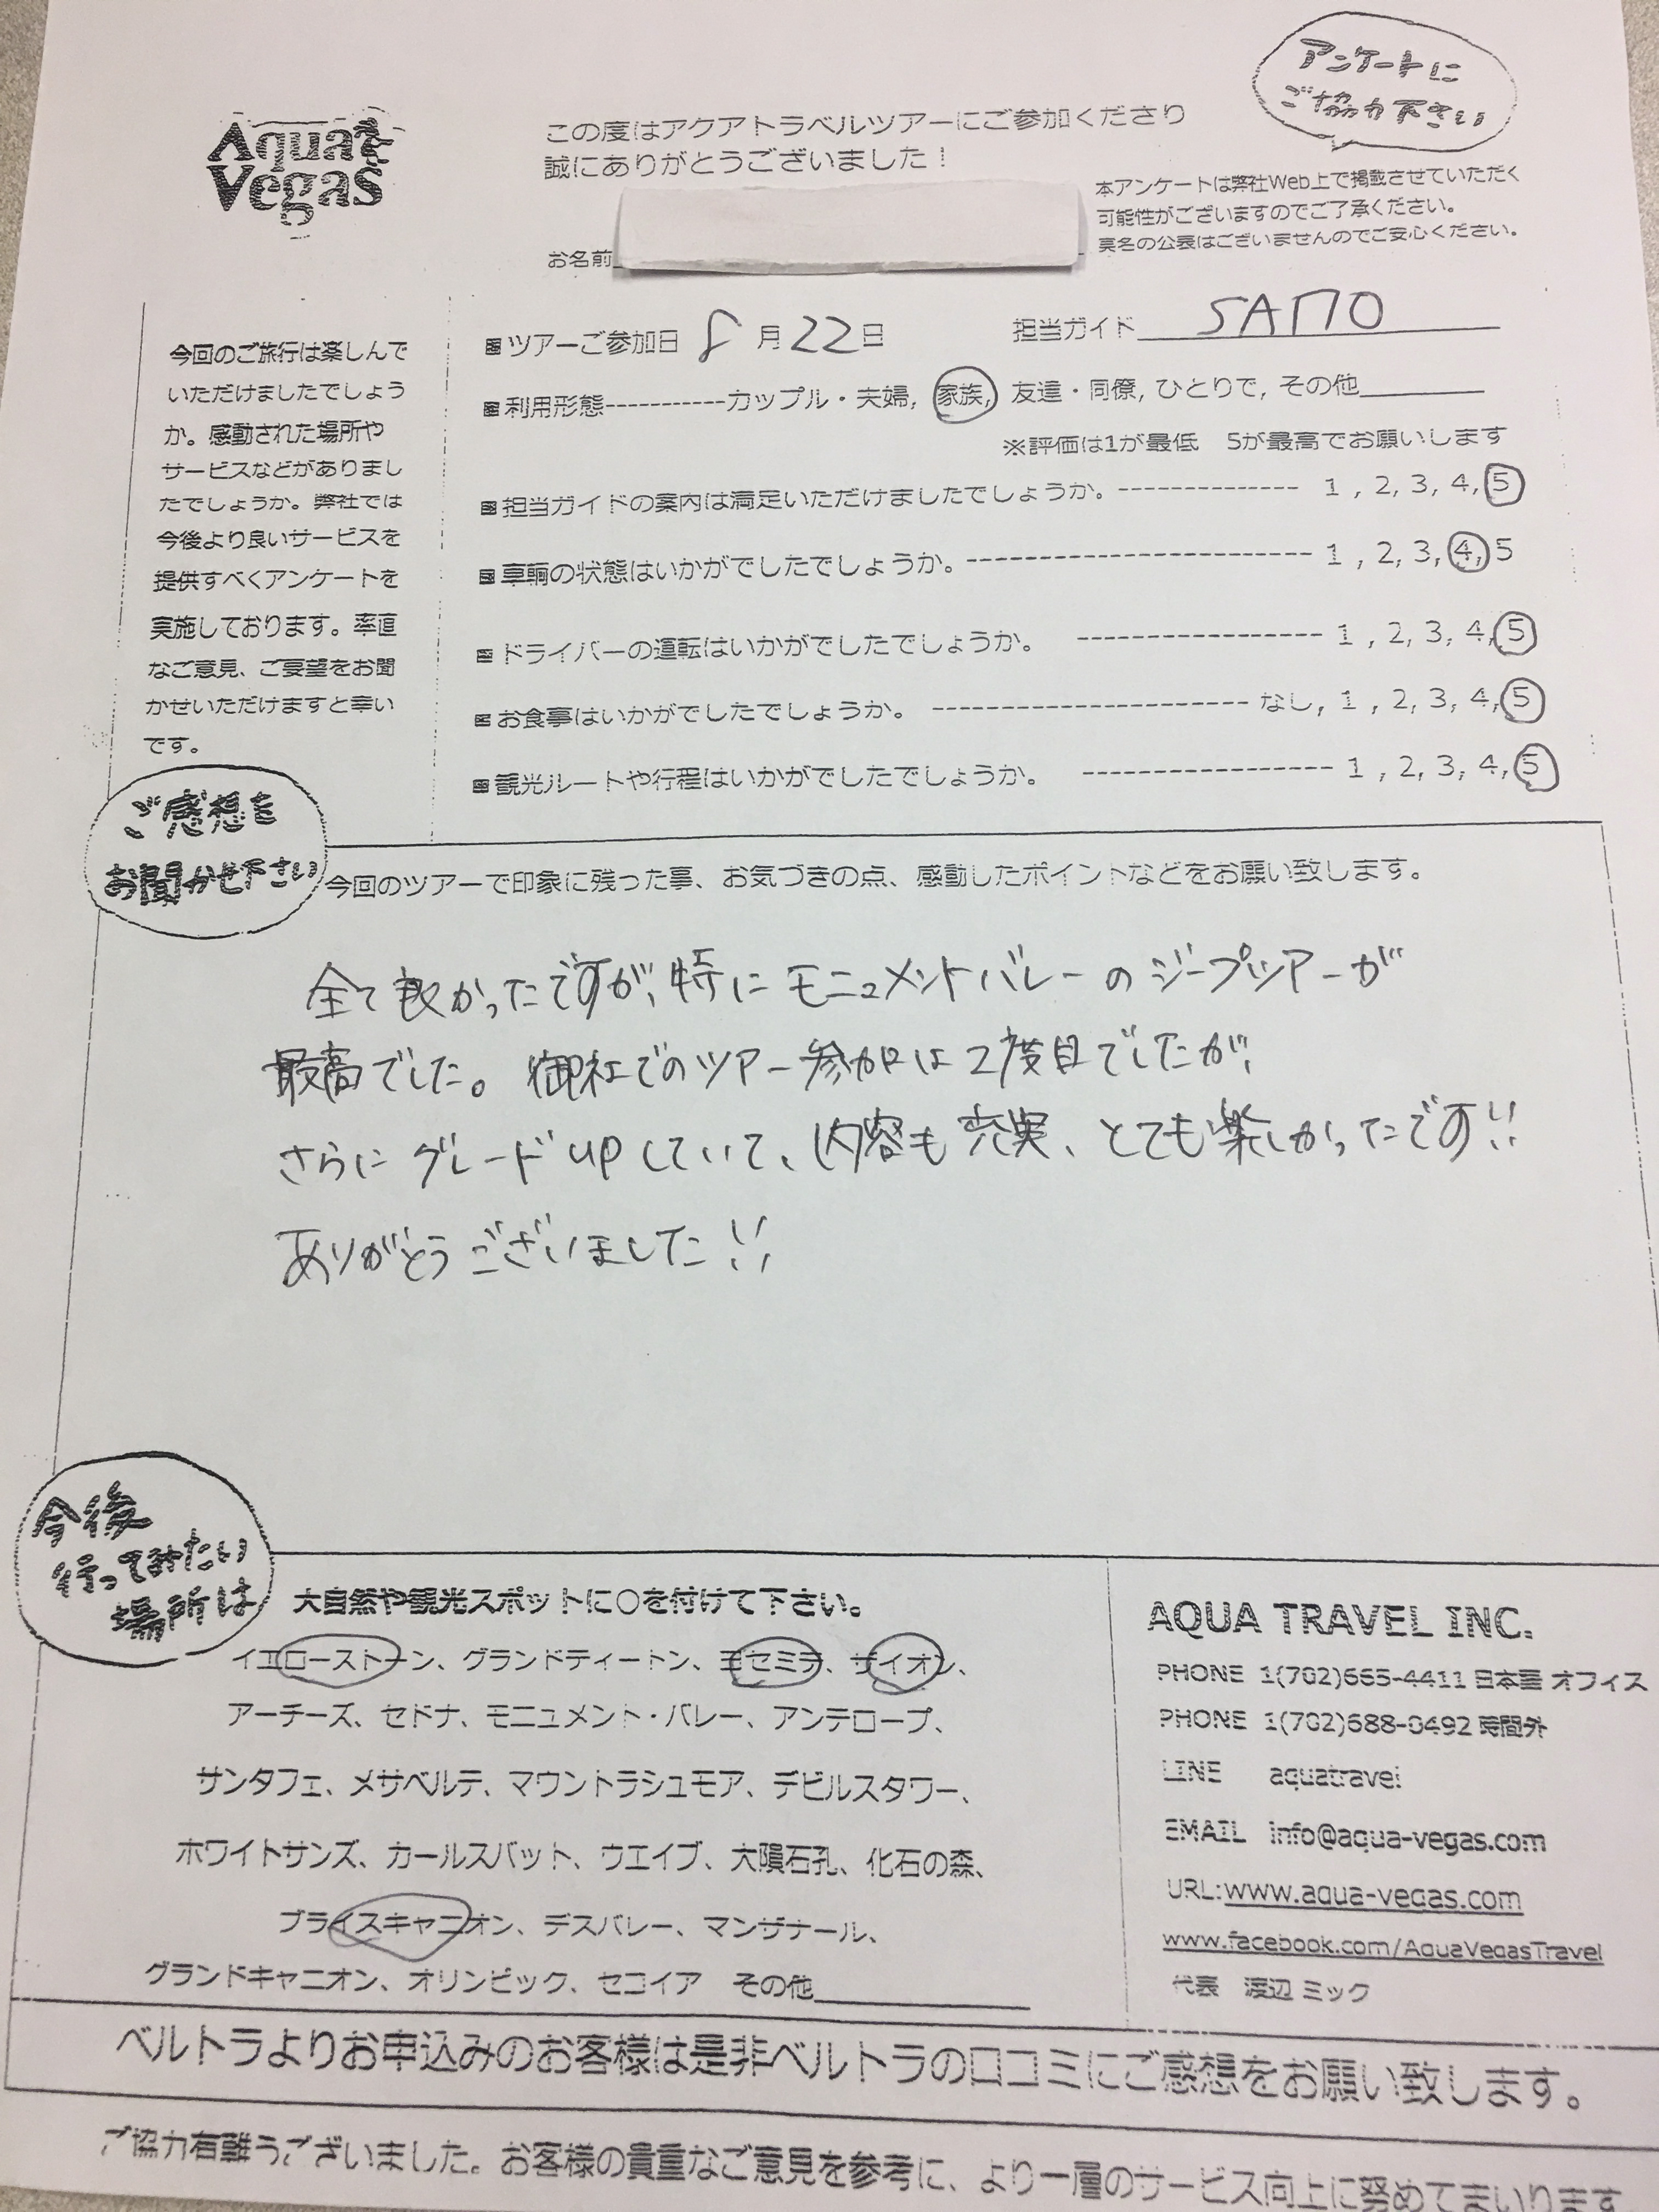 Aqua
Vegas
アンケートに
ご協力下さい
この度はアクアトラベルツアーにご参加くださり
誠にありがとうございました！
本アンケートは弊社Web上で掲載させていただく
可能性がございますのでご了承ください。
実名の公表はございませんのでご安心ください。
お名前
今回のご旅行は楽しんで
いただけましたでしょう
か。感動された場所や
サービスなどがありまし
たでしょうか。弊社では
今後より良いサービスを
提供すべくアンケートを
実施しております。率直
なご意見、ご要望をお聞
かせいただけますと幸い
です。
ツアーご参加日 8月22日 担当ガイド
利用形態-----------カップル・夫婦, 家族, 友達・同僚, ひとりで, その他
※評価は1が最低 5が最高でお願いします
担当ガイドの案内は満足いただけましたでしょうか。-------------- 1 , 2, 3, 4, 5
車輌の状態はいかがでしたでしょうか。------------------------- 1 , 2, 3, 4, 5
ドライバーの運転はいかがでしたでしょうか。 ------------------ 1 , 2, 3, 4, 5
お食事はいかがでしたでしょうか。 ----------------------- なし, 1 , 2, 3, 4, 5
観光ルートや行程はいかがでしたでしょうか。 ------------------ 1 , 2, 3, 4, 5
ご感想を
お聞かせ下さい
今回のツアーで印象に残った事、お気づきの点、感動したポイントなどをお願い致します。
全て良かったですが、特にモニュメントバレーのジープツアーが
最高でした。御社でのツアー参加は2度目でしたが、
さらにグレードupしていて、内容も充実、とても楽しかったです!!
ありがとうございました!!
今後
行ってみたい
場所は
大自然や観光スポットに○を付けて下さい。
イエローストーン、グランドティートン、ヨセミテ、ザイオン、
アーチーズ、セドナ、モニュメント・バレー、アンテロープ、
サンタフェ、メサベルテ、マウントラシュモア、デビルスタワー、
ホワイトサンズ、カールスバット、ウエイブ、大隕石孔、化石の森、
ブライスキャニオン、デスバレー、マンザナール、
グランドキャニオン、オリンピック、セコイア その他
AQUA TRAVEL INC.
PHONE 1(702)665-4411 日本語 オフィス
PHONE 1(702)688-0492 時間外
LINE aquatravel
EMAIL info@aqua-vegas.com
URL:www.aqua-vegas.com
www.facebook.com/AquaVegasTravel
代表 渡辺 ミック
ベルトラよりお申込みのお客様は是非ベルトラの口コミにご感想をお願い致します。
ご協力有難うございました。お客様の貴重なご意見を参考に、より一層のサービス向上に努めてまいります